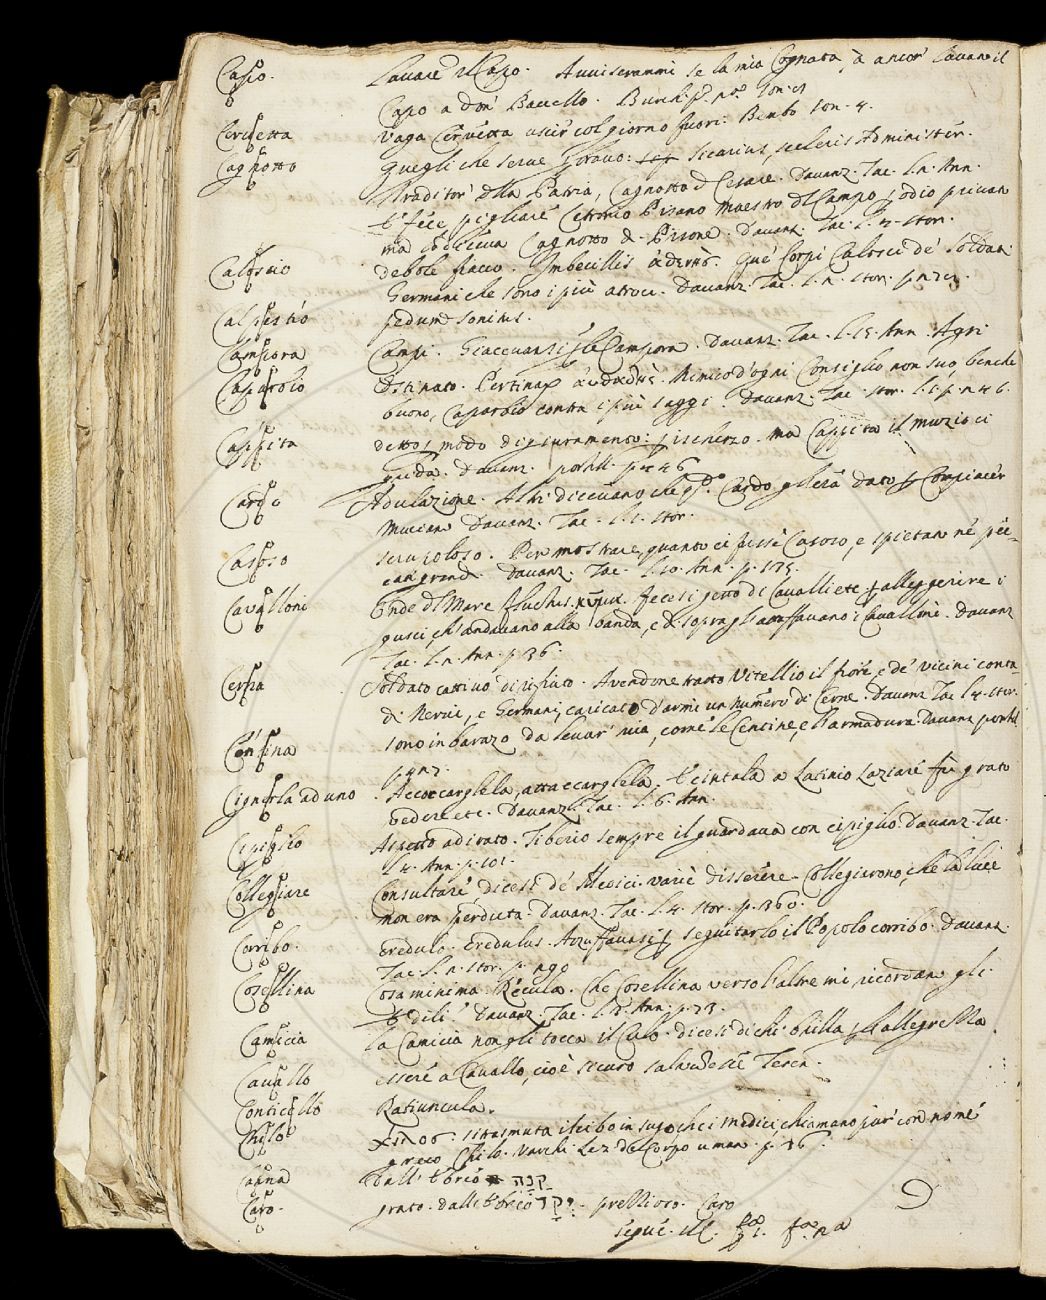 Capo. Lavare il Capo. Avviseranmi se la mia Cognata, à ancor' lavano il
Capo a don' Baccello. Burch. p.
Cervetta Vaga Cervetta uscir' col giorno fuori. Bembo son. 4.
Cagnotto Quegli che serve p bravo: sicarius, sceleris Administer.
Traditor' della Patria, Cagnotto d Cesare. Davanz. Tac. l. n. Ann.
e fece pigliare Pisano Maestro del Campo, p odio privato
ma diceva Cagnotto di Pisone. Davanz. Tac. l. stor.
Caloscio debole fiacco. Imbecillis. Que' Corpi Calosci de' soldati
Germani che sono i più atroci. Davanz. Tac. l. n. stor. p.
Calpestio pedum sonitus.
Campora Campi. Giacevansi p le Campora. Davanz. Tac. l. 15. Ann. Agri
Caparbio Ostinato. Pertinax. Nimico d'ogni Consiglio non suo, benche
buono, Caparbio contra i più saggi. Davanz. Tac. stor. l. 1. p. n46
Cappita detto p modo di giuramento: p ischerzo. ma Cappita il muzio ci
grida. Davanz. postill. p. 46
Cardo Adulazione. Altri dicevano che Cardo gl'era dato p Compiacer
Muciano Davanz. Tac. l. stor.
Casoso scrupoloso. Per mostrare, quanto ei fusse Casoso, e spietato ne' pic-
cari grandi. Davanz. Tac. l. 10. Ann. p. 175.
Cavalloni Onde del Mare fluctus. fece si getto di Cavalli ete p alleggerire i
gusci, ch'andavano alla banda, e di sopra gl'azzuffavano i Cavalloni. Davanz
Tac. l. n. Ann. p. 36.
Cerna Soldato cattivo di rifiuto. Avendone tratto Vitellio il fiore, e de' vicini conta
di Nervii, e Germani, caricato d'armi un numero di Cerne. Davanz Tac l. 4. stor.
Centina sono inbarazo da levar' via, come le Centine, e l'armadura. Davanz postil
p.
Cignerla ad uno Accoccargliela, attaccargliela. e cintala a Latinio Laziare p grato
vedere ete. Davanz. Tac. l. 6. Ann.
Cipiglio Aspetto adirato. Tiberio sempre il guardava con cipiglio. Davanz. Tac.
l. 4. Ann. p. 101.
Collegiare Consultare dicesi de' Medici. variè disserere. Collegiarono, che la luce
non era perduta. Davanz. Tac. l. 4. stor. p. 360.
Corribo. Credulo. Credulus. Azzuffavansi p seguitarlo il Popolo corribo. Davanz.
Tac. l. n. stor. p. n90
Cosellina Cosa minima. Recula. Che Cosellina verso l'altre mi ricordano gli
Edili. Davanz. Tac. l. 3. Ann. p. 73.
Camicia la Camicia non gli tocca il Culo. dicesi di chi brilla p l'allegrezza.
Cavallo essere a Cavallo, cioè securo Teren.
Conticello Ratiuncula.
Chilo si trasmuta il cibo in sugo che i medici chiamano pur' con nome
greco Chilo. Varchi Lez. del Corpo uman. p. 36.
Canna dall' Ebreo קנה
Caro. grato. dall' Ebreo יקר. prezioso. Caro
segue al.